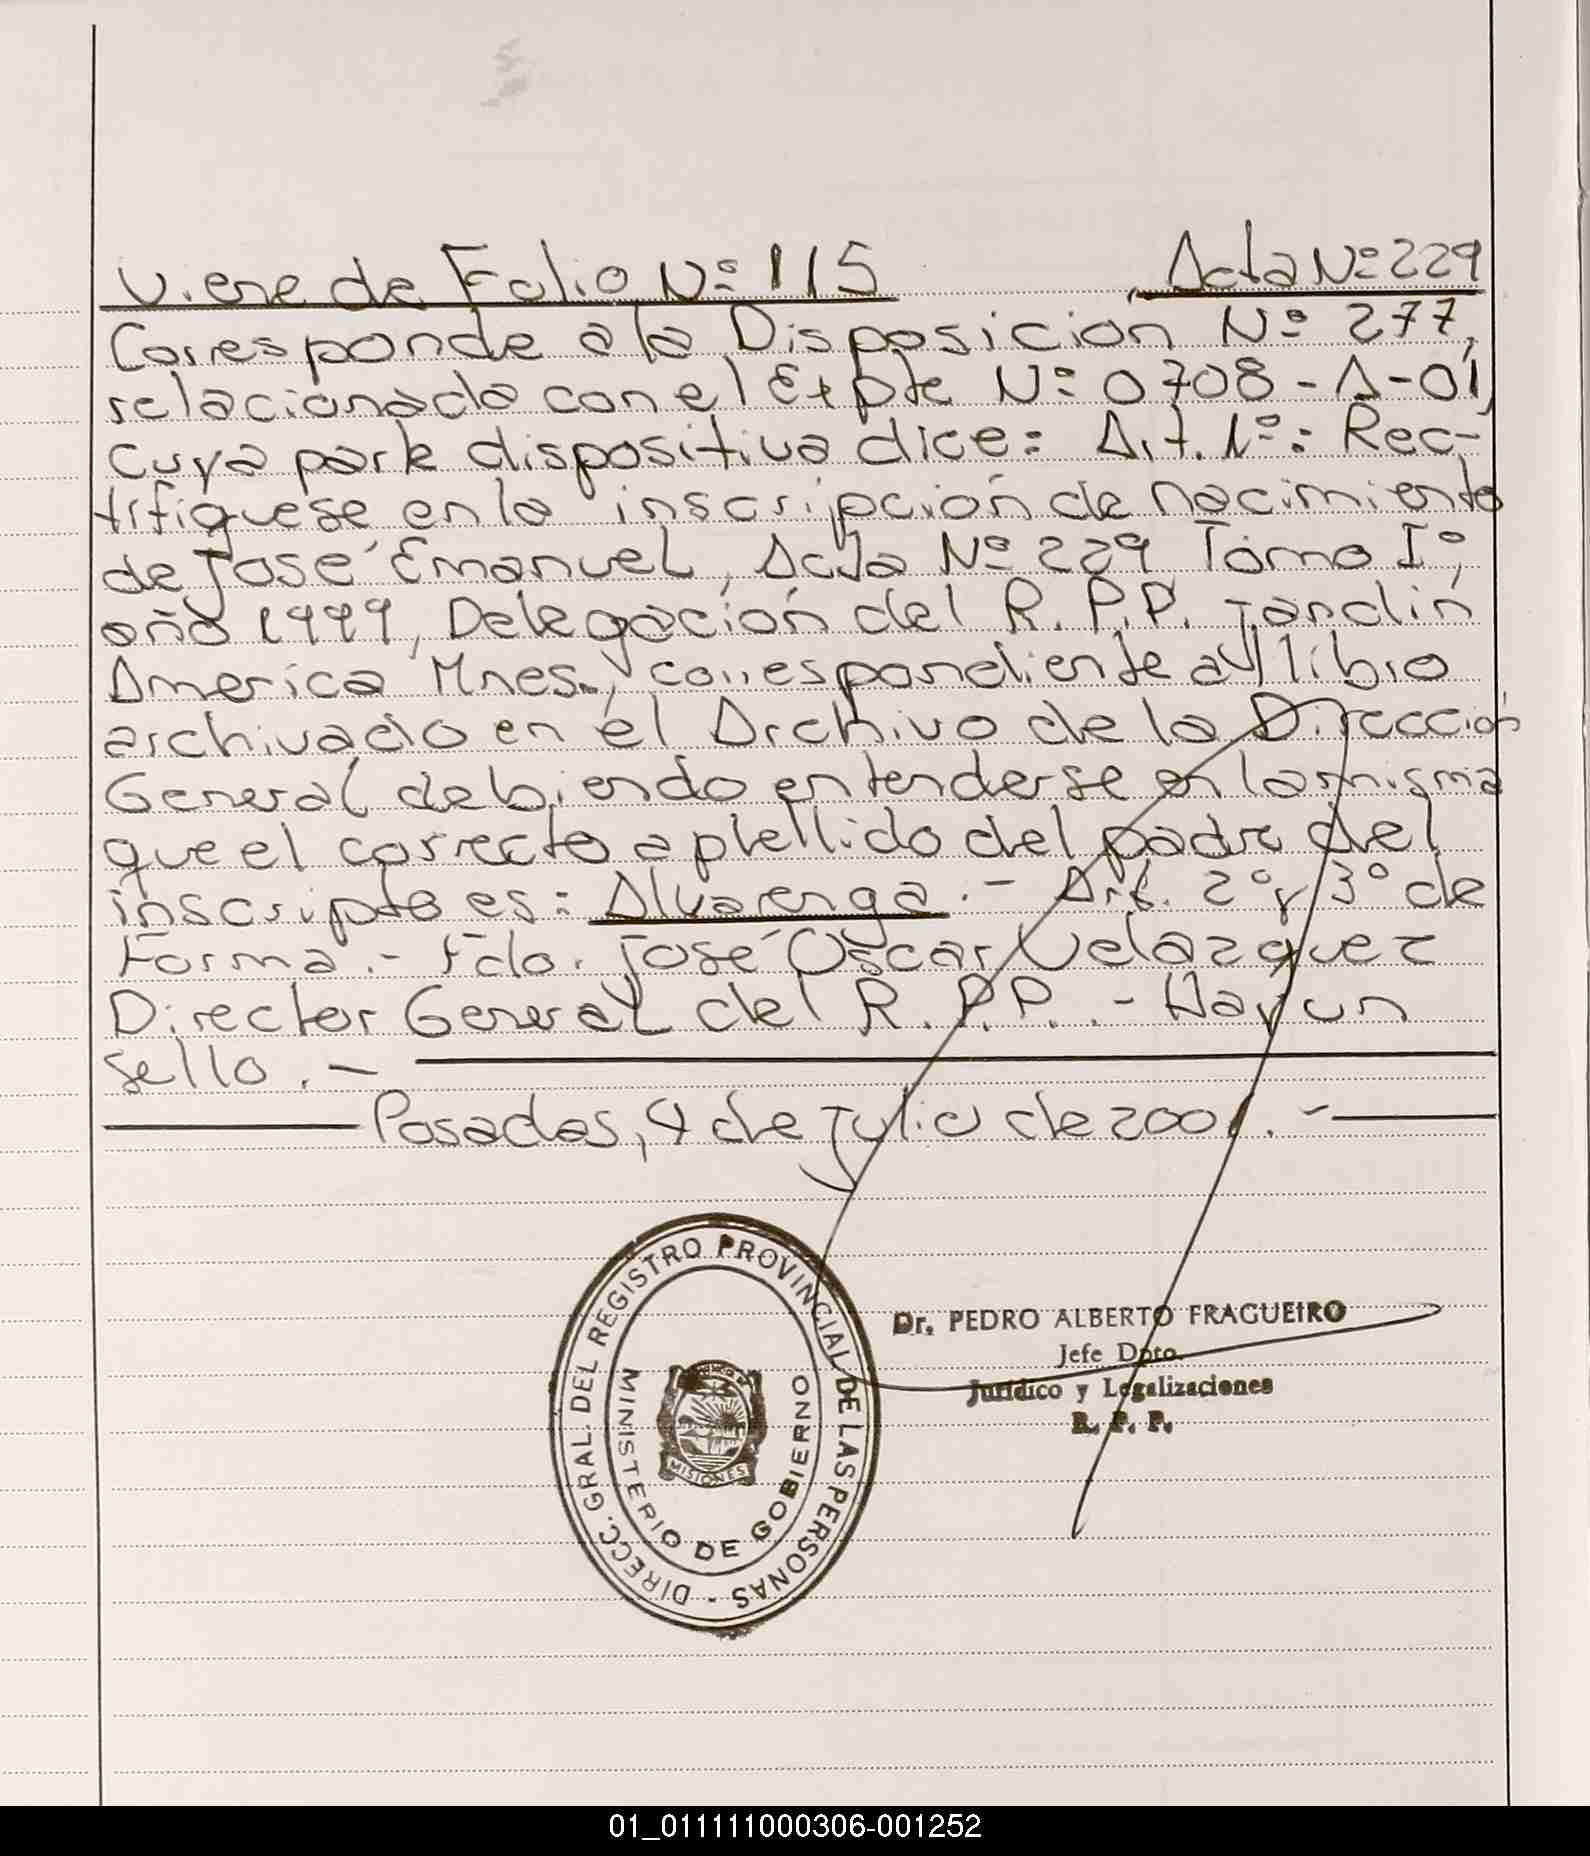 Viene de Folio Nº 115 Acta Nº 229
Corresponde a la Disposición Nº 277,
relacionado con el Expte Nº 0708-A-01,
cuya parte dispositiva dice: Art. 1º: Rec-
tifíquese en la inscripción de nacimiento
de José Emanuel, Acta Nº 229 Tomo Iº,
año 1999, Delegación del R.P.P. Jardín
America Mnes., correspondiente al libro
archivado en el Archivo de la Dirección
General debiendo entenderse en la misma
que el correcto aplellido del padre del
inscripto es: Alvarenga.- Art. 2º y 3º de
Forma.- Fdo. José Oscar Velazquez
Director General del R.P.P.- Hay un
sello.-
Posadas, 4 de Julio de 2001.-
DIRECC. GRAL. DEL REGISTRO PROVINCIAL DE LAS PERSONAS -
MINISTERIO DE GOBIERNO
MISIONES
Dr. PEDRO ALBERTO FRAGUEIRO
Jefe Dpto.
Jurídico y Legalizaciones
R. P. P.
01_011111000306-001252